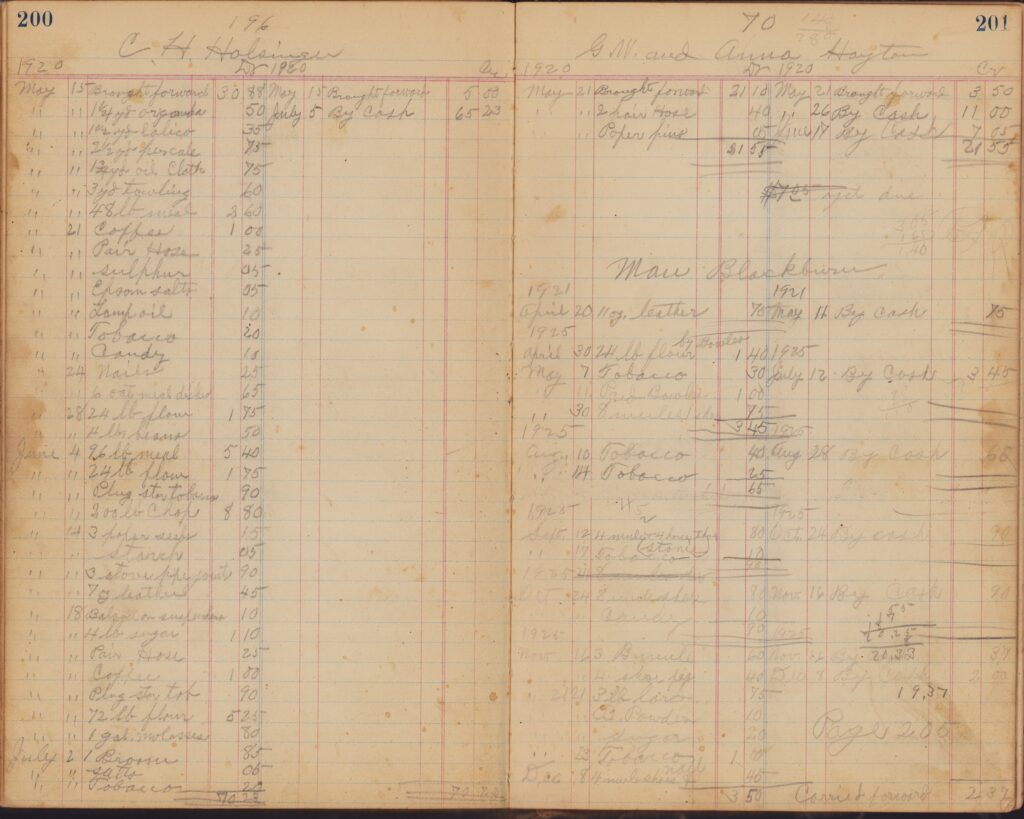 200
196
C H Holsinger
1920 Dr 1920 Cr
May 15 Brought forward 30 88 May 15 Brought forward 5 00
" " 1 1/4 yd organda 50 July 5 By Cash 65 23
" " 1 1/2 yd Calico 35
" " 2 1/2 yd percale 75
" " 1 3/4 yd oil Cloth 75
" " 3 yd towling 60
" " 48 lb meal 2 60
" 21 Coffee 1 00
" " Pair Hose 25
" " Sulphur 05
" " Epsom salts 05
" " Lamp oil 10
" " Tobacco 20
" " Candy 10
" 24 Nails 25
" " 6 oat meal dishes 65
" 28 24 lb flour 1 75
" " 4 lbs beans 50
June 4 96 lb meal 5 40
" " 24 lb flour 1 75
" " Plug star tobacco 90
" " 200 lb Chop 8 80
" 14 3 paper seeds 15
" " Starch 05
" " 3 stove pipe joint 90
" " leather 45
" 18 suspenders 10
" " 4 lb sugar 1 10
" " Pair Hose 25
" " Coffee 1 00
" " Plug star tob 90
" " 72 lb flour 5 25
" " 1 gal. molasses 80
July 2 1 Broom 85
" " 05
" " Tobacco 20
70 23 70 23
70
201
G. W. and Anna Hayton
1920 Dr 1920 Cr
May 21 Brought forward 21 10 May 21 Brought forward 3 50
" " 2 pair Hose 40 " 26 By Cash 11 00
" " Paper pins 05 June 17 By Cash 7 05
21 55 21 55
$7.05 yet due
Man Blackburn
1921 1921
April 20 11 oz. leather 75 May 11 By Cash 75
1925
April 30 24 lb flour by Bowles 1 40 1925
May 7 Tobacco 30 July 12 By Cash 3 45
" 11 1 00
" 30 8 mule shoes 75
1925 3 45 1925
Aug 10 Tobacco 40 Aug 28 By Cash 65
" 14 Tobacco 25
65
1925 1925
Sept. 12 80 Oct. 24 By Cash 90
" 17 Tobacco 10
1925
Oct 24 8 mule shoes 80 Nov 16 By Cash 90
" " Candy 10
1925 90 1925
Nov 16 3 60 Nov By 37
40 Dec 8 By Cash 2 00
19.37
" 21 75
Powder 10
Sugar 20
Page 205
" 23 Tobacco 1 00
Dec 8 4 mule shoes nail 45
3 50 Carried forward 2 37